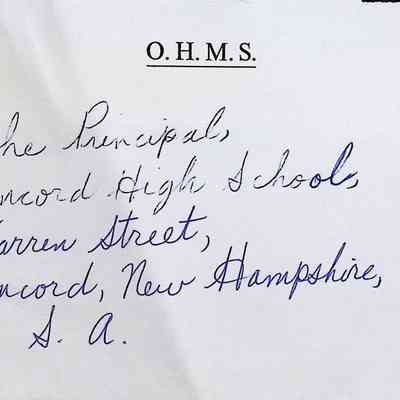 O. H. M. S.
he Principal,
ncord High School,
arren Street,
ncord, New Hampshire,
S. A.